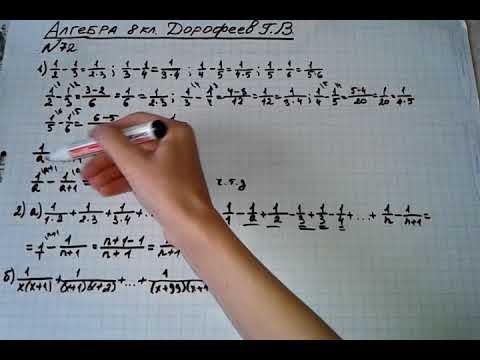 Алгебра 8 кл. Дорофеев Г.В.
N72
1) 1/2 - 1/3 = 1/(2·3) ; 1/3 - 1/4 = 1/(3·4) ; 1/4 - 1/5 = 1/(4·5) ; 1/5 - 1/6 = 1/(5·6)
1/2 - 1/3 = (3-2)/6 = 1/6 = 1/(2·3) ; 1/3 - 1/4 = (4-3)/12 = 1/12 = 1/(3·4) ; 1/4 - 1/5 = (5-4)/20 = 1/20 = 1/(4·5)
1/5 - 1/6 = (6-5)/
1/a - 1/(a+1) = ч.т.д
2) а) 1/(1·2) + 1/(2·3) + 1/(3·4) + ... 1/1 - 1/2 + 1/2 - 1/3 + 1/3 - 1/4 + ... + 1/n - 1/(n+1) =
= 1/1 - 1/(n+1) = (n+1-1)/(n+1) = n/(n+1)
б) 1/(x(x+1)) + 1/((x+1)(x+2)) + ... + 1/((x+99)(x+